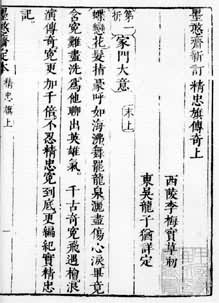 墨憨齋新訂精忠旗傳奇上
西陵李梅實草剏
東吳龍子猶詳定
第一折 家門大意 末上
蝶戀花髮指豪呼如海沸舞罷龍泉灑盡傷心淚畢竟
含冤難盡洗為他聊出英雄氣 千古奇冤飛遇檜浪
演傳奇冤更加千倍不忍精忠冤到底更編紀實精忠
記
精忠旗上
墨憨齋定本